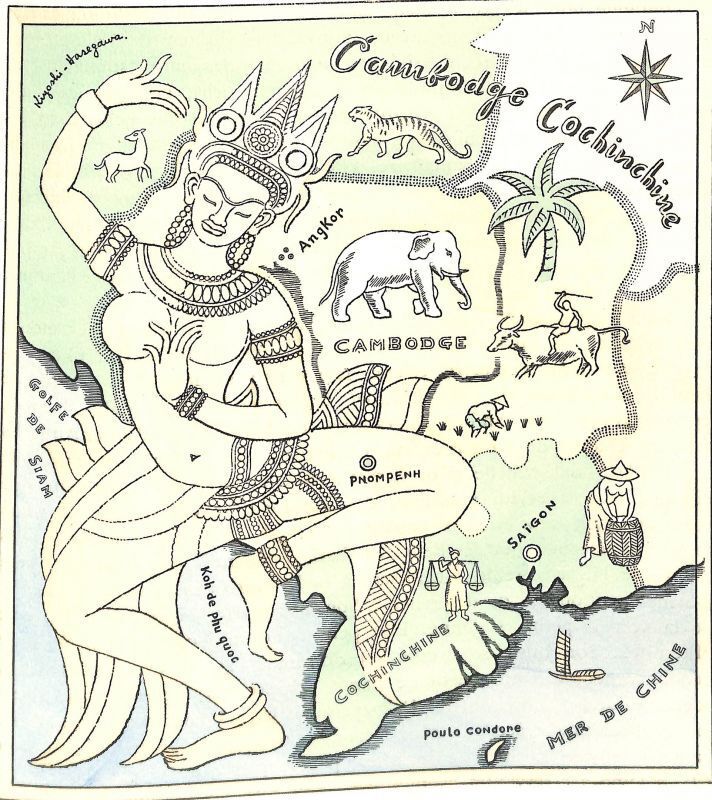 Kiyoshi-Hasegawa.
Cambodge Cochinchine
N
Angkor
CAMBODGE
GOLFE
DE
SIAM
PNOMPENH
SAÏGON
Koh de phu quoc
COCHINCHINE
Poulo Condore
MER DE CHINE